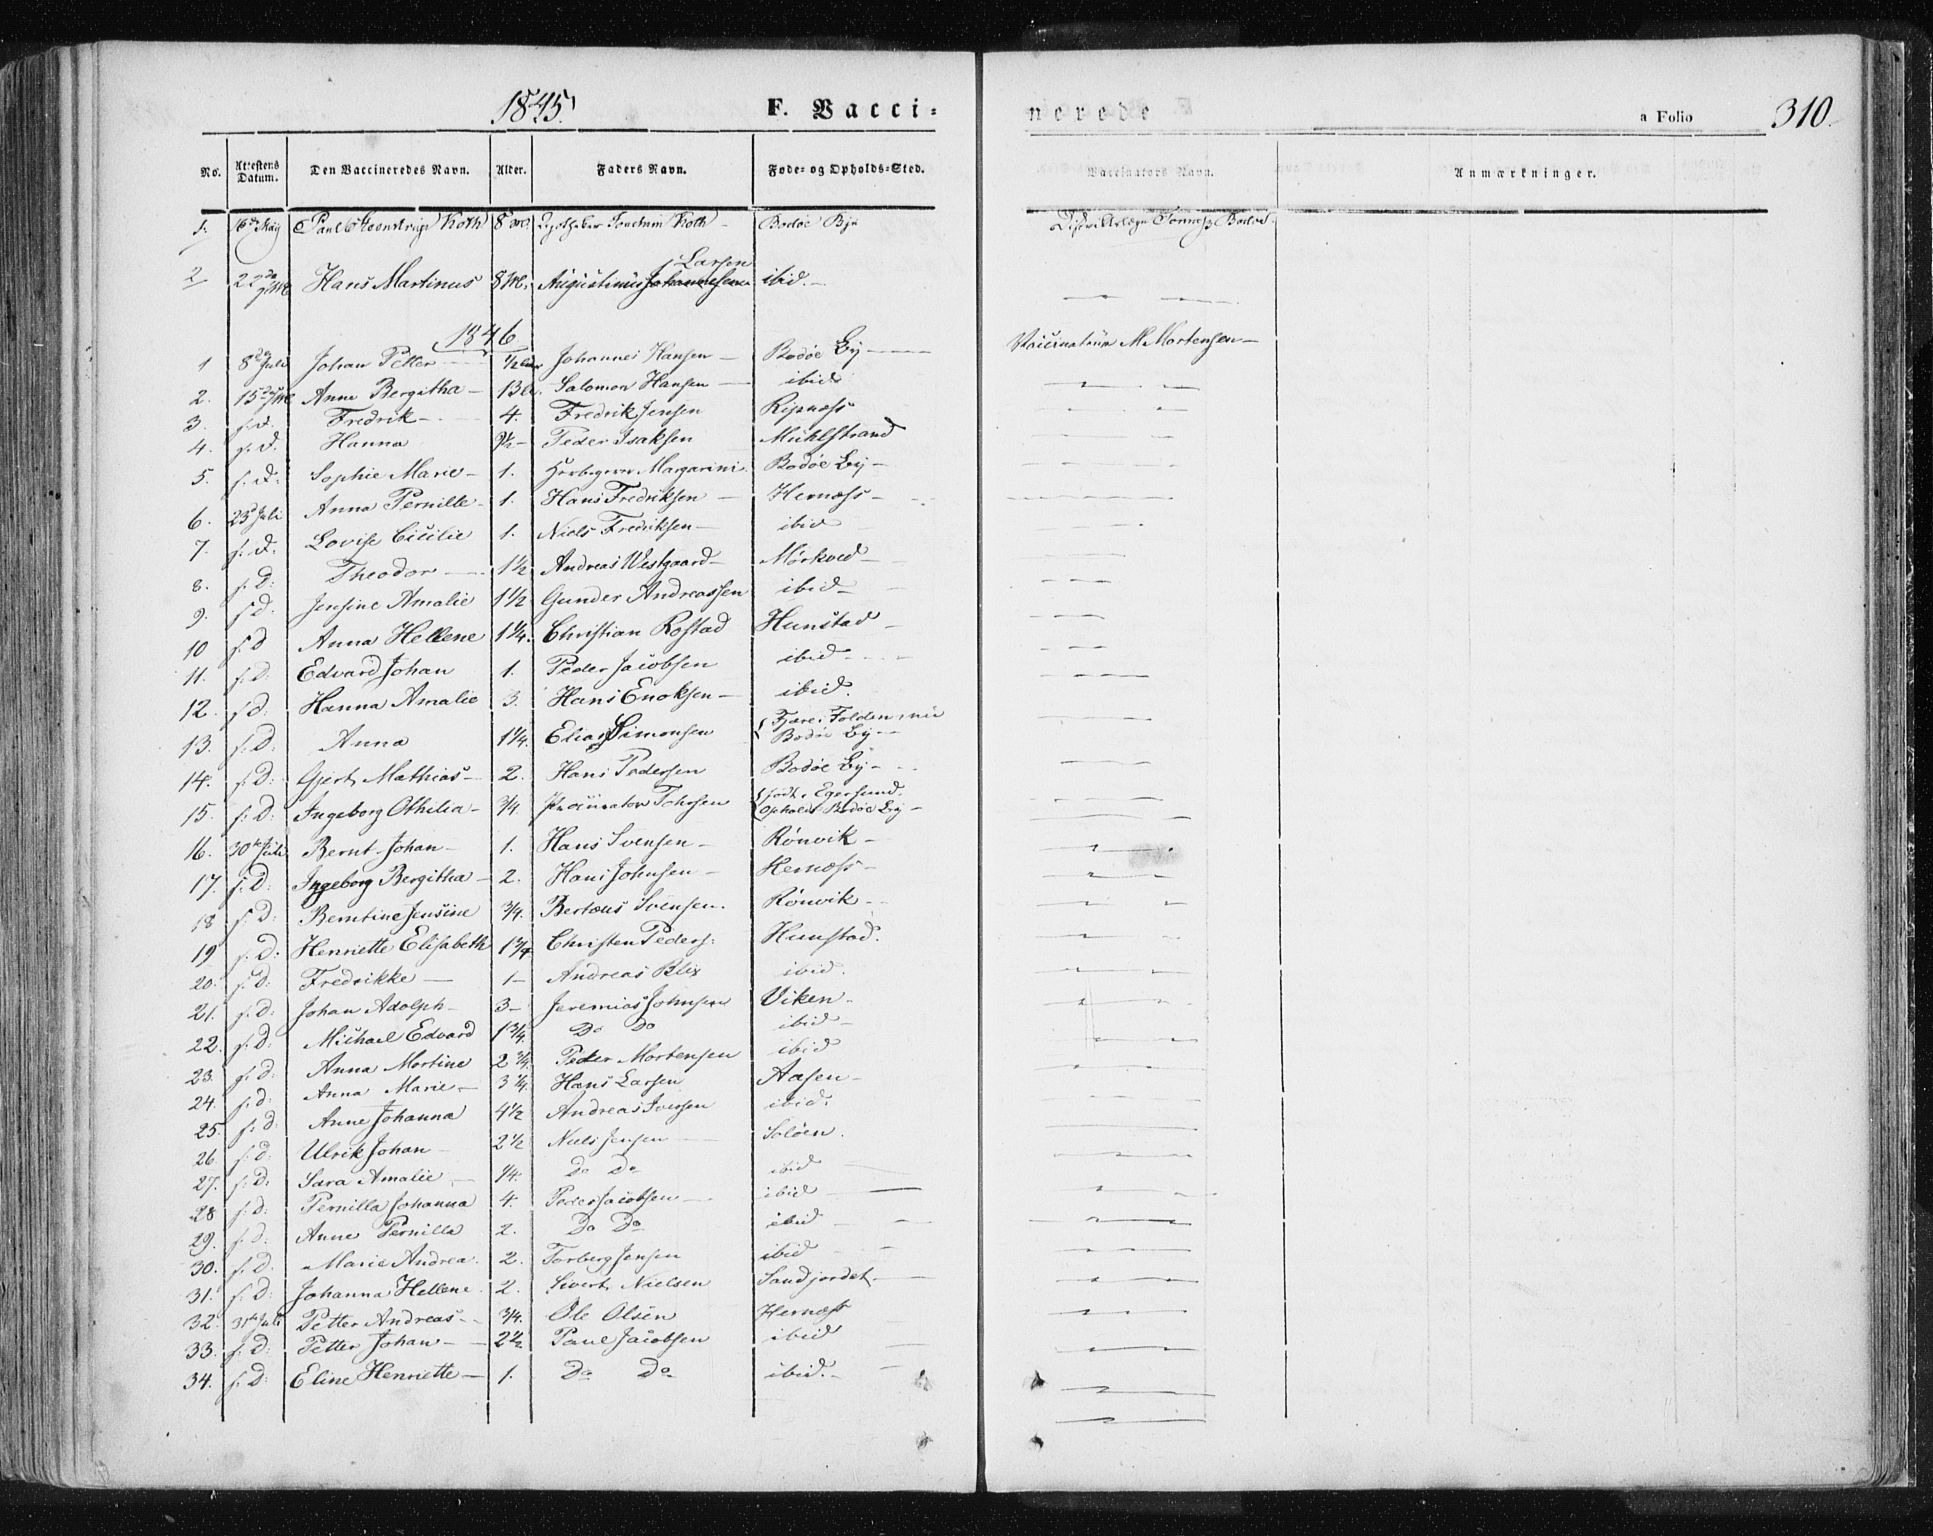 1845.
F. Vacci=
nerede
a Folio
310.
No. Attestens Datum. Den Vaccineredes Navn. Alder. Faders Navn. Føde- og Opholds-Sted. Vaccinators Navn. Anmærkninger.
1. Paul Steenstrup Koth 8 Koth Bodöe By Bodöe
Larsen
2 22de Hans Martinus 8 M. Augustinus Johannesen ibid.
1846
1 8de Juli Johan Petter ½ Johannes Hansen Bodöe By Vaccinateur M. Mortensen
2. 15de Anne Bergitha 13 Salomon Hansen ibid
3. s. d. Fredrik 4. Fredrik Jensen Ripnæss
4. s. d. Hanna 9½ Peder Isaksen Mühlstrand
5. s. d. Sophie Marie 1. Margarini Bodöe By
6. 23d Juli Anna Pernille 1. Hans Fredriksen Hernæss
7. s. d. Lovise Cicilie 1. Niels Fredriksen ibid
8. s. D: Theodor 1½ Andreas Westgaard Mörkved
9. s d. Jensine Amalie 1½ Gunder Andreassen ibid
10 s. d Anna Hellene 1¼. Christian Rostad Hunstad
11. s. d. Edvard Johan 1. Peder Jacobsen ibid
12. s d. Hanna Amalie 3. Hans Enoksen ibid.
13. s. D: Anna 1¼. Elias Simonsen Fjære i Folden, nu Bodöe By
14. s. D: Gjert Mathias 2. Hans Pedersen Bodöe By
15. s: D: Ingeborg Othelia ¾. Procurator Födt i Egersund. Ophold Bodöe By
16. 30te Juli Bernt Johan 1. Hans Svensen Rönvik
17. s: D: Ingeborg Bergitha 2. Hans Johnsen Hernæss
18 s. D: Berntine Jensine ¾. Bertæus Svensen. Rönvik
19 s. D: Henriette Elisabeth 1¾ Christen Peders: Hunstad.
20. s. d: Fredrikke 1 Andreas Blix ibid.
21. s. d: Johan Adolph 3 Jeremias Johnsen Viken
22. s. D: Michael Edvard 1¾. Do Do ibid
23. s. d: Anna Martine 2¾. Peder Mortensen ibid
24. s. d: Anna Marie 3¼. Hans Larsen Aasen
25. s. d: Anne Johanna 4½ Andreas Iversen ibid.
26 s. D: Ulrik Johan 2½ Niels Jensen Solöen.
27. s. D: Sara Amalie ¼. Do Do ibid
28 s. d: Pernilla Johanna 4. Peder Jacobsen ibid
29. s. d: Anne Pernilla 2. Do Do ibid
30. s. D. Marie Andrea. 2. Torberg Jensen ibid
31. s. D: Johanna Hellene. 2. Sivert Nielsen Sandjordet
32. 31te Juli Petter Andreas ¾. Ole Olsen Hernæss
33. s. D. Petter Johan 2½ Paul Jacobsen ibid
34. s. D: Eline Henriette 1. Do Do ibid.